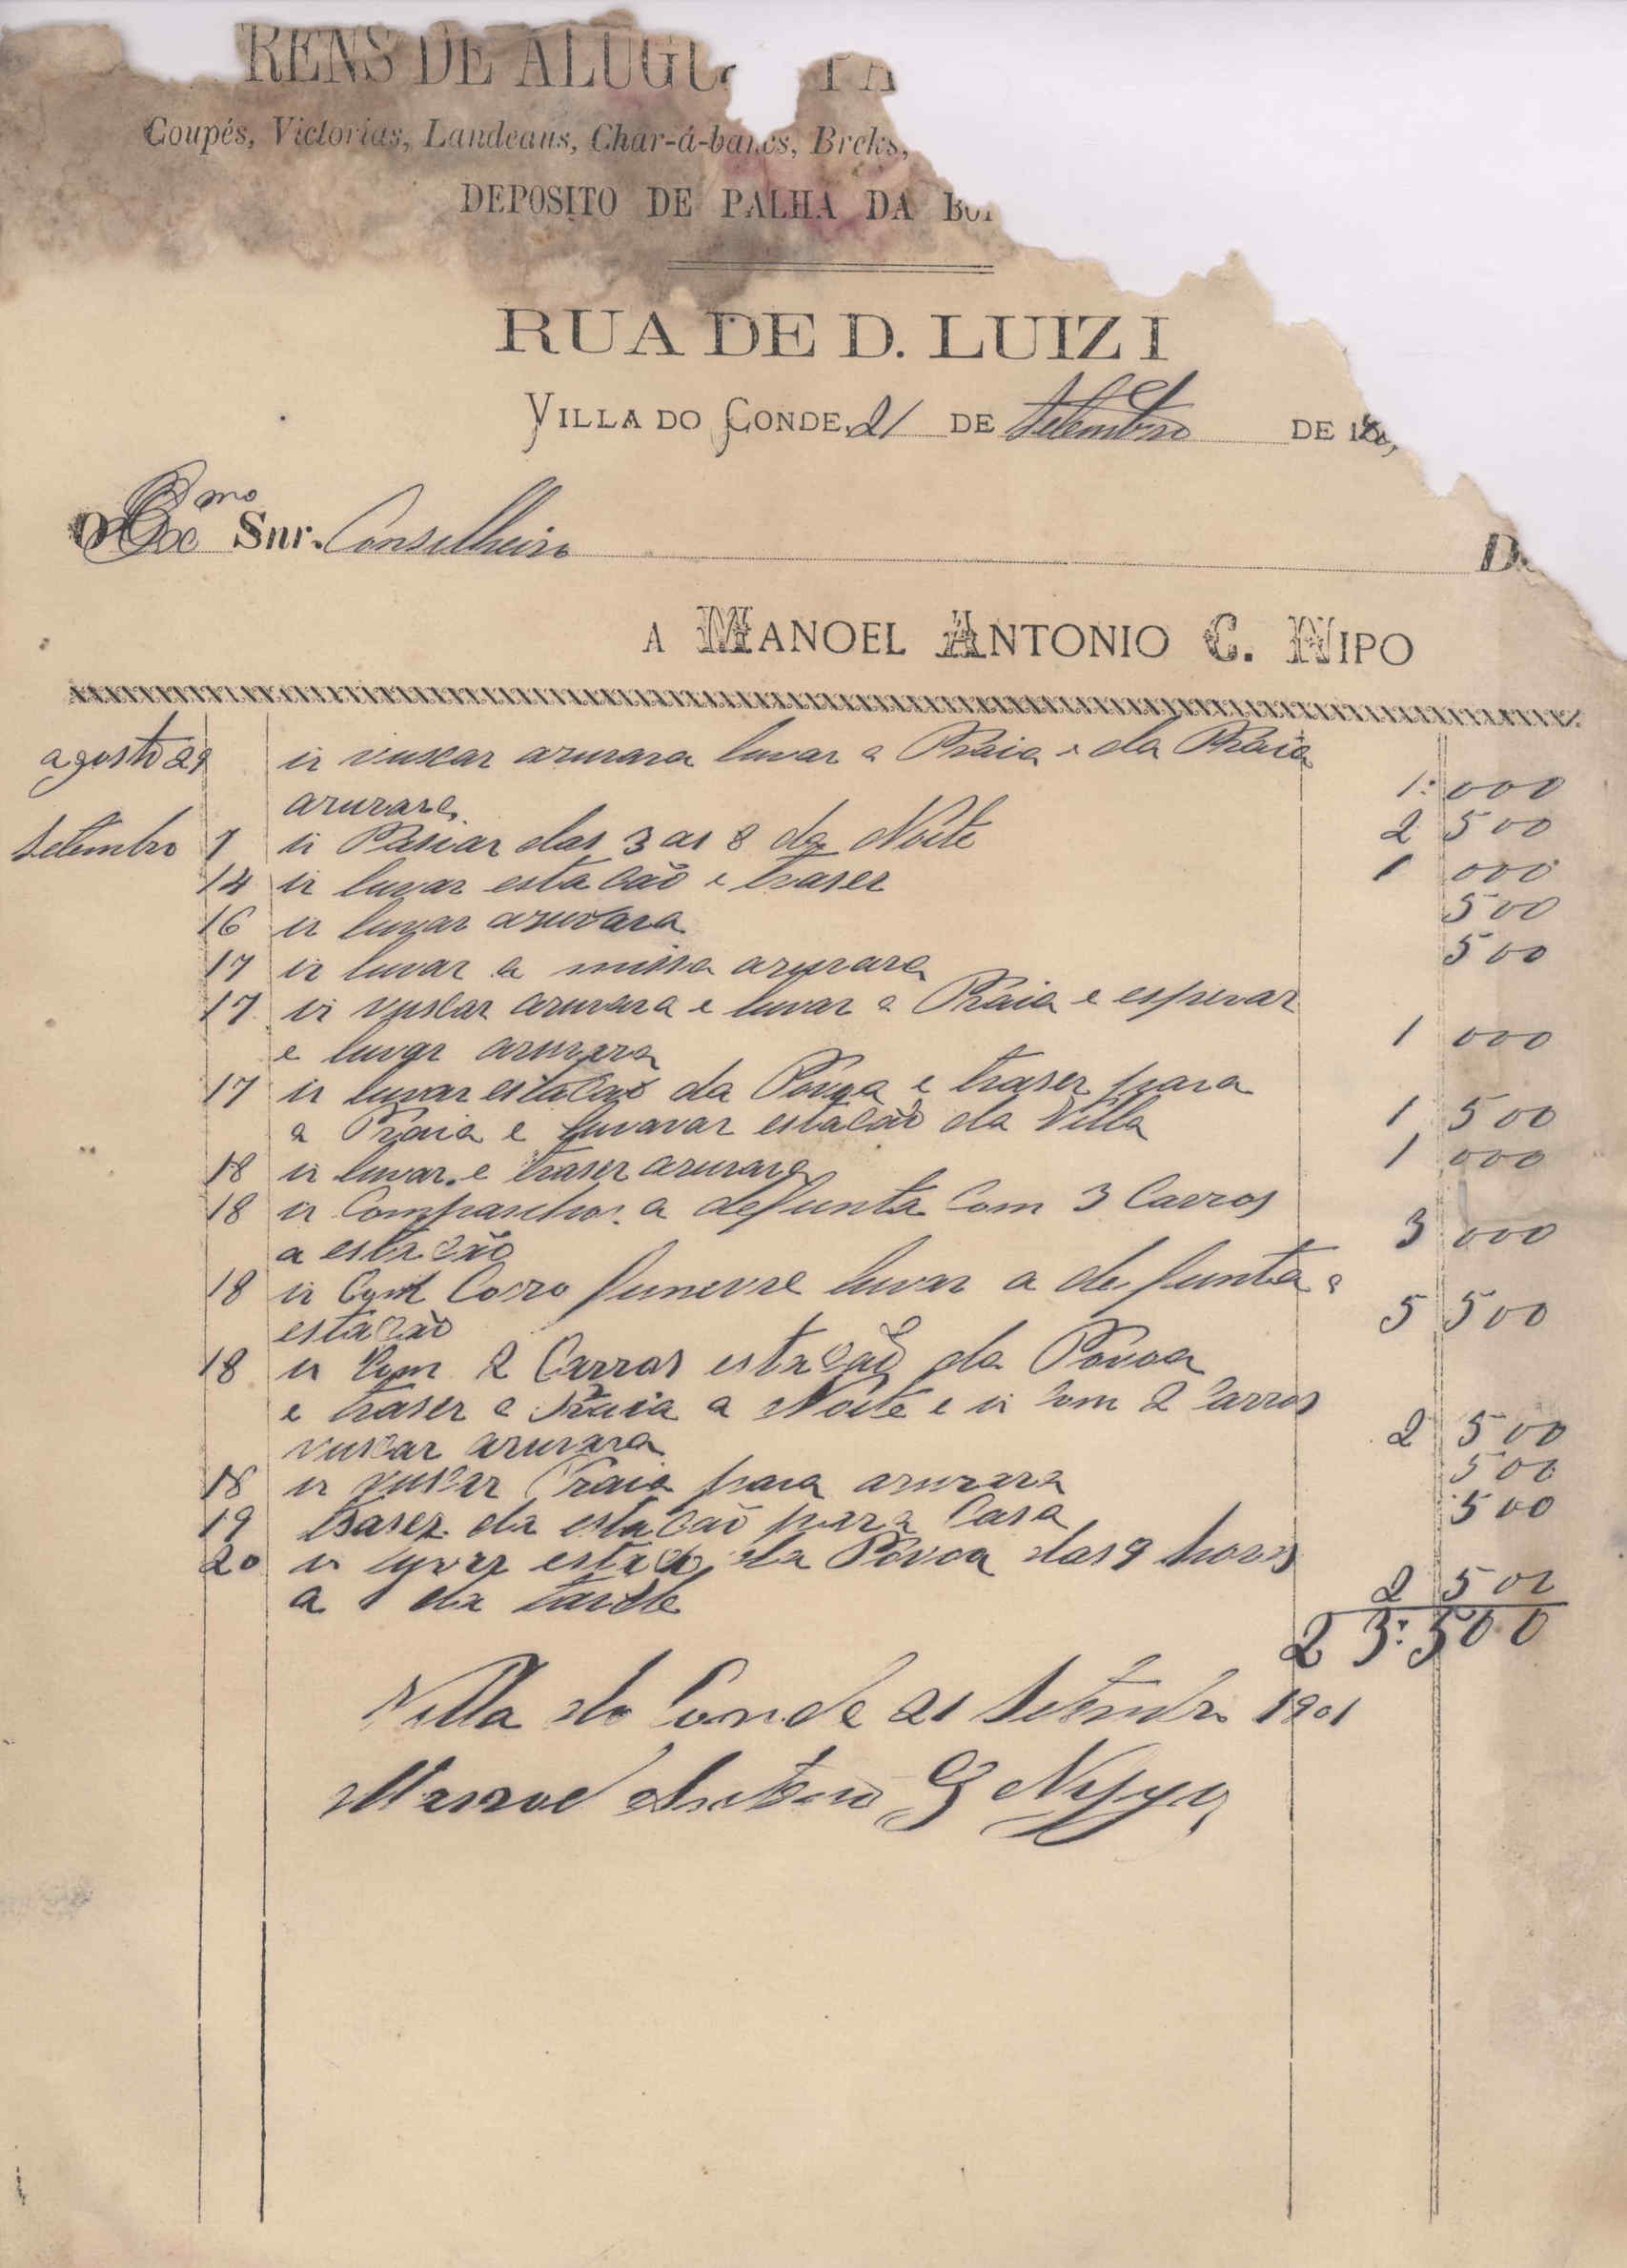 RENS DE ALUGU PA
Coupés, Victorias, Landeaus, Char-á-bancs, Breks,
DEPOSITO DE PALHA DA
RUA DE D. LUIZ I
VILLA DO CONDE, 21 DE Setembro DE 18
O Exmo Snr. Conselheiro D
A MANOEL ANTONIO C. NIPO
agosto 29 ir vuscar azurara luvar a Praia e da Praia
azurara 1:000
Setembro 7 ir Pasiar das 3 as 8 da Noite 2 500
14 ir luvar estacão e traser 1 000
16 ir luvar azurara 500
17 ir luvar a missa azurara 500
17 ir vuscar azurara e luvar a Praia e esperar
e luvar azurara 1 000
17 ir luvar estacão da Povoa e traser para
a Praia e luvavar estacão da Villa 1 500
18 ir luvar e traser azurara 1 000
18 ir a defunta Com 3 Carros
a estacão 3 000
18 ir Com Corro funevre luvar a defunta a
estacão 5 500
18 ir Com 2 Carros estacão da Povoa
e traser a Praia a Noite e ir Com 2 Carros
vuscar azurara 2 500
18 ir vuscar Praia para azurara 500
19 traser da estacão para Casa 500
20 ir luvar da Povoa das 9 horas
a 1 da tarde 2 500
23:500
Villa do Conde 21 Setembro 1901
Manoel Antonio C Nipo